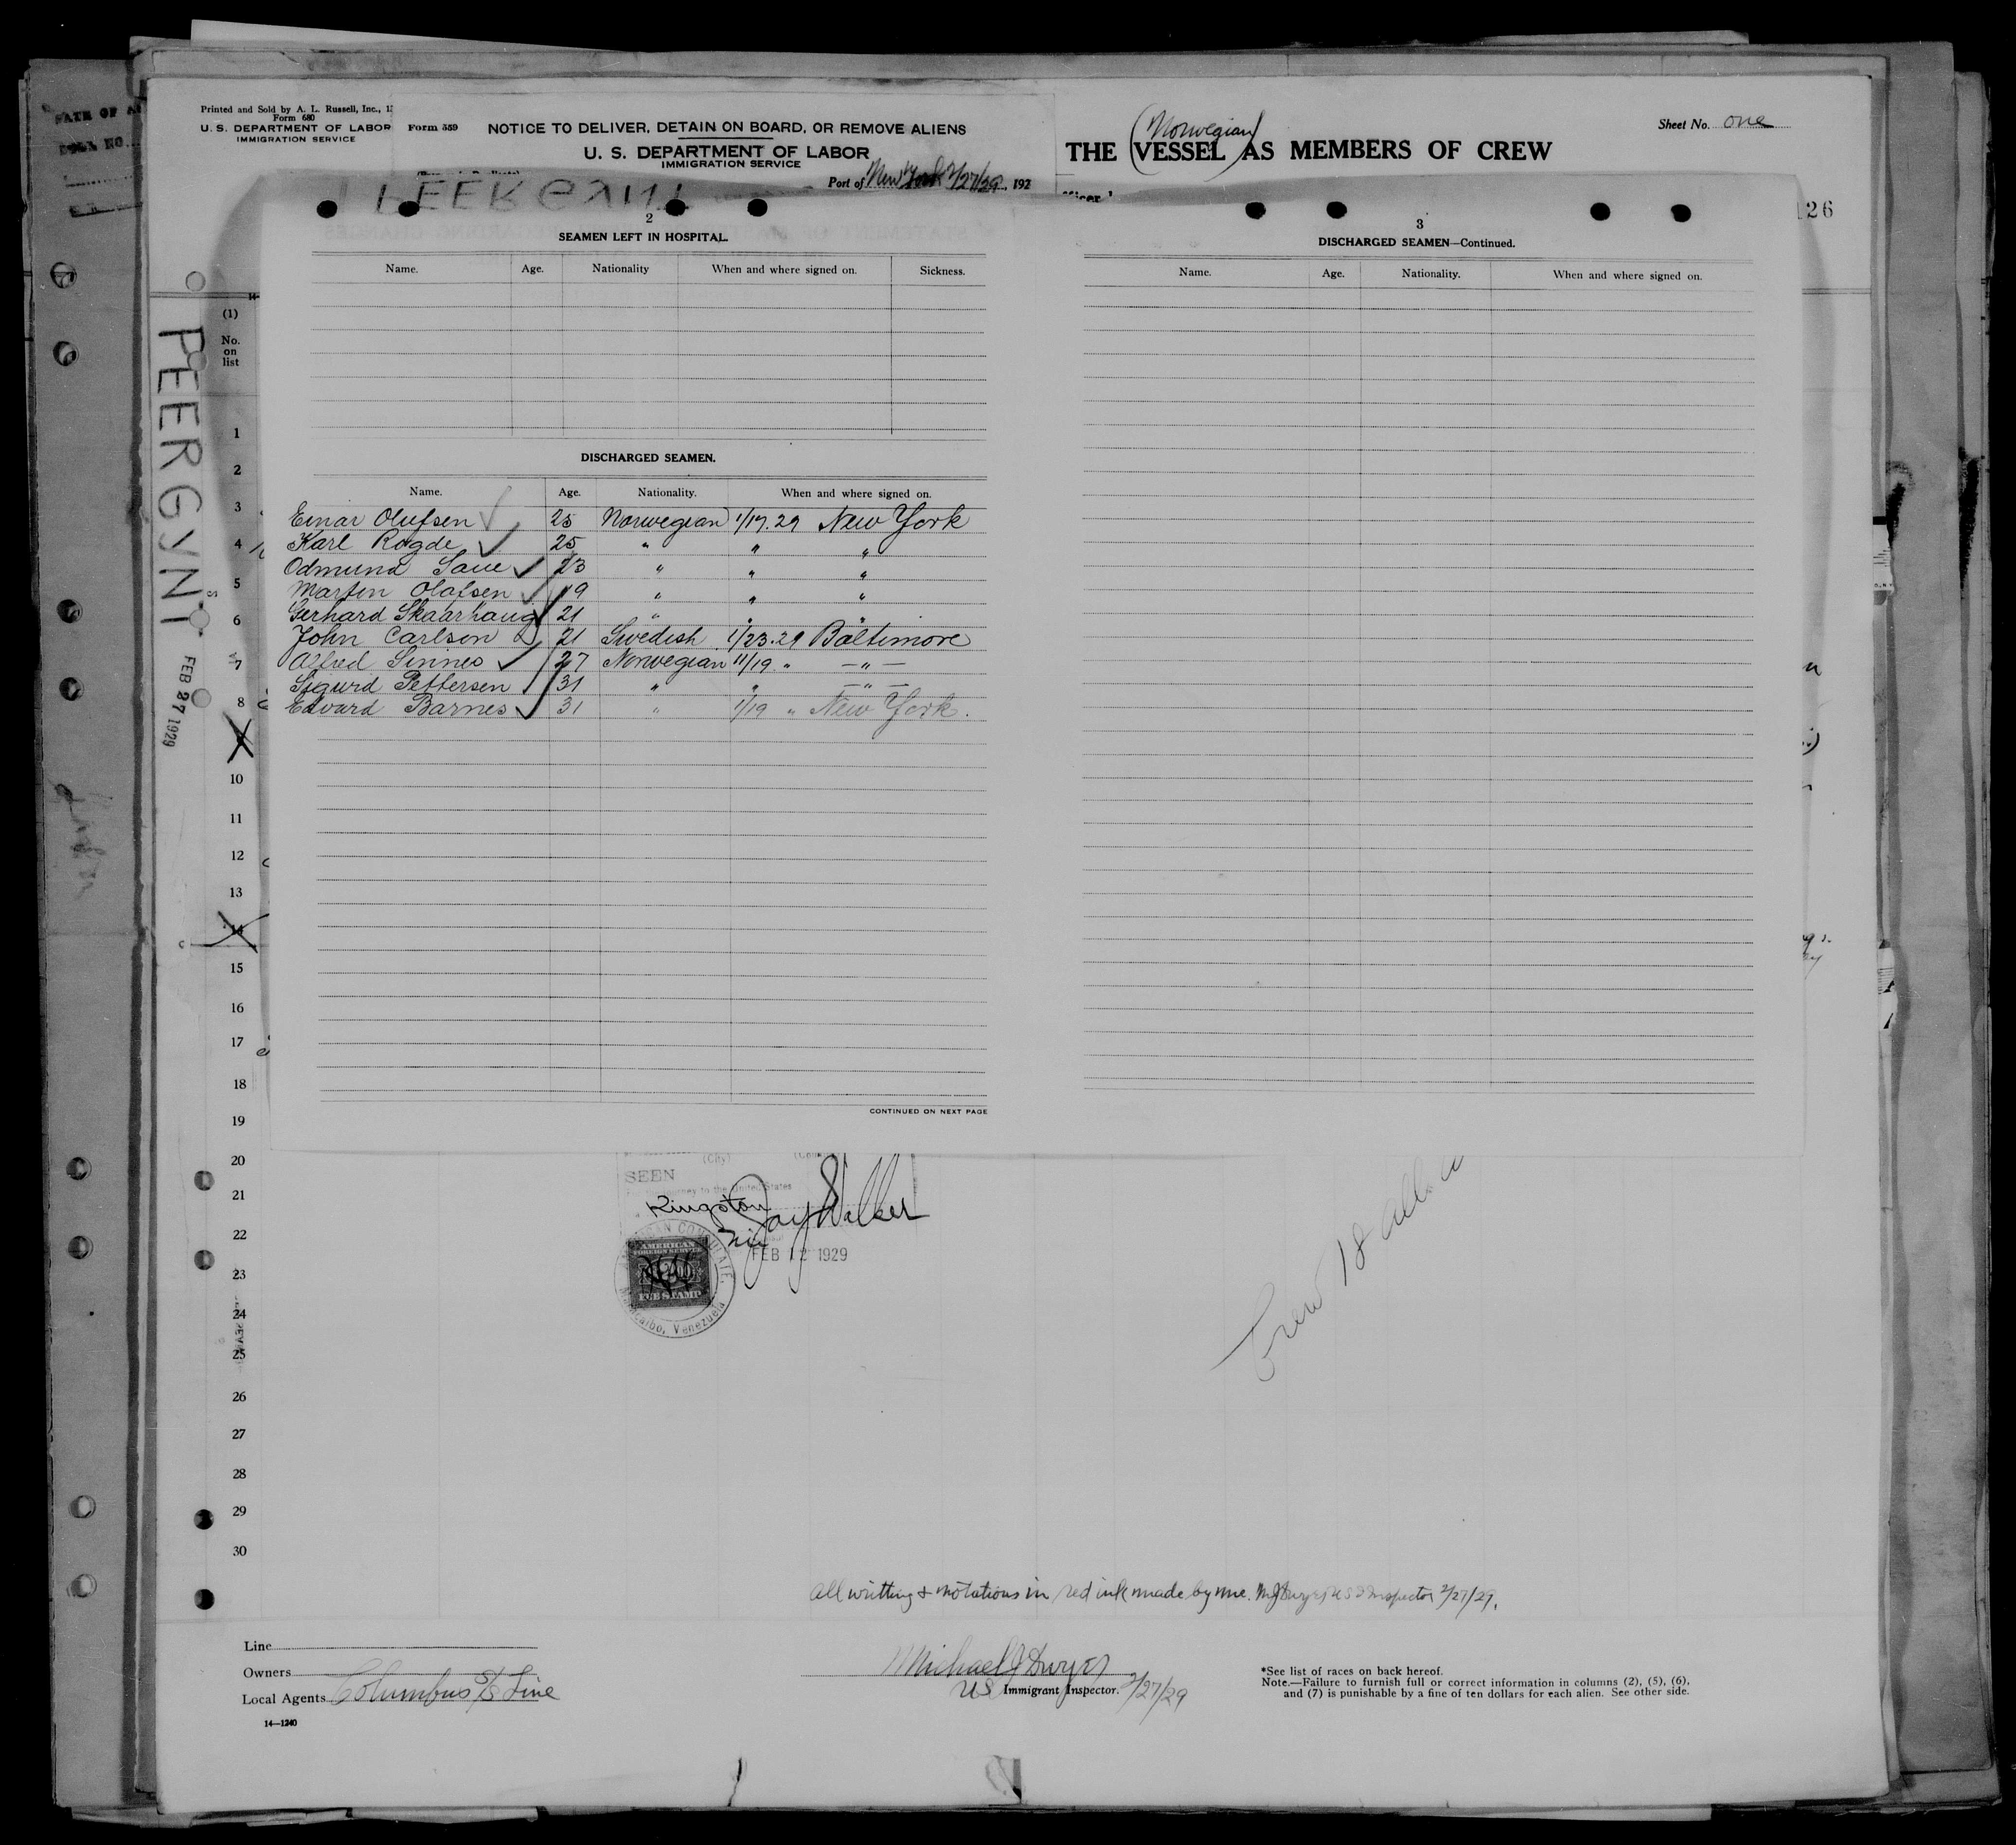 Printed and Sold by A. L. Russell, Inc., 1
Form 680
U. S. DEPARTMENT OF LABOR
IMMIGRATION SERVICE
Form 559
NOTICE TO DELIVER, DETAIN ON BOARD, OR REMOVE ALIENS
U. S. DEPARTMENT OF LABOR
IMMIGRATION SERVICE
Port of New York 2/27/29, 192
(Norwegian)
THE (VESSEL) AS MEMBERS OF CREW
Sheet No. one
126
PEER GYNT
PEER GYNT
FEB 27 1929
(1)
No.
on
list
2
SEAMEN LEFT IN HOSPITAL.
Name. Age. Nationality When and where signed on. Sickness.
DISCHARGED SEAMEN.
Name. Age. Nationality. When and where signed on.
Einar Olufsen 25 Norwegian 1/17.29 New York
Karl Rogde 25 " " "
Odmund Saue 23 " " "
Martin Olafsen 19 " " "
Gerhard Skaarhaug 21 " " "
John Carlson 21 Swedish 1/23.29 Baltimore
Alfred Sinnes 27 Norwegian 11/19 " — " —
Sigurd Pettersen 31 " " — " —
Edvard Barnes 31 " 1/19 " New York.
CONTINUED ON NEXT PAGE
3
DISCHARGED SEAMEN—Continued.
Name. Age. Nationality. When and where signed on.
1
2
3
4
5
6
7
8
10
11
12
13
14
15
16
17
18
19
20
21
22
23
24
25
26
27
28
29
30
(City)
SEEN
journey to the United States
Kingston
Jay Walker
FEB 12 1929
AMERICAN CONSULATE,
Maracaibo, Venezuela
AMERICAN
FOREIGN SERVICE
FEE STAMP
Crew 18 all
all writting & notations in red ink made by me. MJ Dwyer U S I Inspector 2/27/29.
Line
Owners
Local Agents Columbus S/S Line
14—1240
Michael J Dwyer
US Immigrant Inspector. 2/27/29
*See list of races on back hereof.
Note.—Failure to furnish full or correct information in columns (2), (5), (6),
and (7) is punishable by a fine of ten dollars for each alien. See other side.